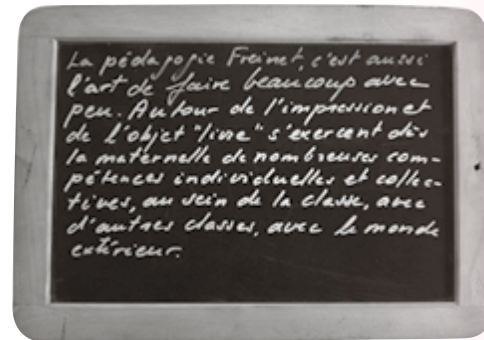 La pédagogie Freinet, c'est aussi
l'art de faire beaucoup avec
peu. Autour de l'impression et
de l'objet "livre" s'exercent dès
la maternelle de nombreuses com-
pétences individuelles et collec-
tives, au sein de la classe, avec
d'autres classes, avec le monde
extérieur.